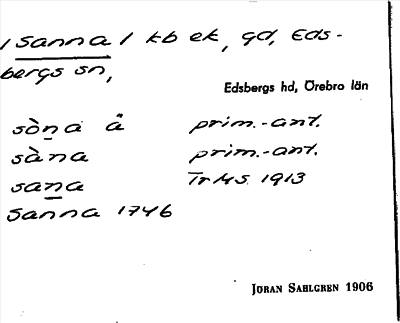 /Sanna/ kb ek, gd, Eds-
bergs sn,
Edsbergs hd, Örebro län
sòna å prim.-ant.
sàna prim.-ant.
sana Tr MS 1913
Sanna 1746
JÖRAN SAHLGREN 1906